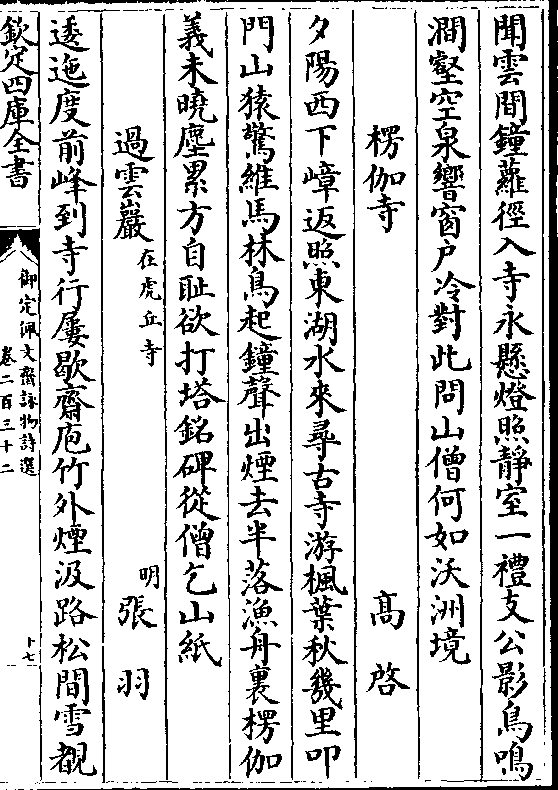 聞雲間鐘蘿徑入寺永懸燈照靜室一禮支公影鳥鳴
澗壑空泉響窗戶冷對此問山僧何如沃洲境
楞伽寺 高啓
夕陽西下嶂返照東湖水來尋古寺游楓葉秋幾里叩
門山猿驚維馬林鳥起鐘聲出煙去半落漁舟裏楞伽
義未曉塵累方自恥欲打塔銘碑從僧乞山紙
過雲巖在虎丘寺 明張羽
逶迤度前峰到寺行屢歇齋庖竹外煙汲路松間雪覩
欽定四庫全書
御定佩文齋詠物詩選
卷二百三十二
十七